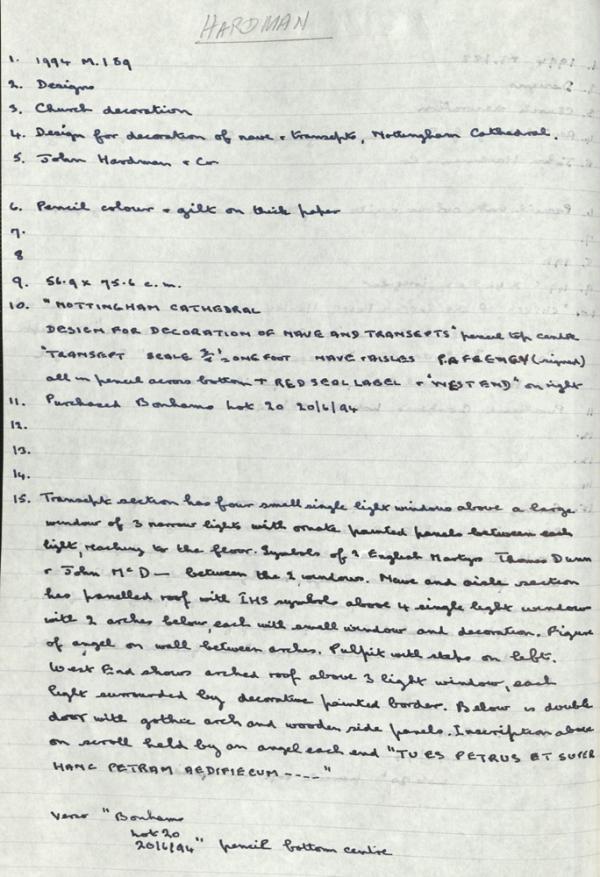 HARDMAN
1. 1994 M.159
2. Designs
3. Church decoration
4. Design for decoration of nave + transepts, Nottingham Cathedral.
5. John Hardman + Co
6. Pencil colour + gilt on thick paper
7.
8
9. 56.9 x 75.6 c.m.
10. "NOTTINGHAM CATHEDRAL
DESIGN FOR DECORATION OF NAVE AND TRANSEPTS" pencil top centre
"TRANSEPT SCALE ONE FOOT NAVE + AISLES (signed)
all in pencil across bottom + RED SEAL LABEL + "WEST END" on right
11. Purchased Bonhams Lot 20 20/6/94
12.
13.
14.
15. Transept section has four small single light windows above a large
window of 3 narrow lights with ornate painted panels between each
light, reaching to the floor. Symbols of 2 English Martyrs Thomas Dunn
+ John McD— between the 2 windows. Nave and aisle section
has panelled roof with IHS symbols above 4 single light windows
with 2 arches below, each with small window and decoration. Figure
of angel on wall between arches. Pulpit with steps on left.
West End shows arched roof above 3 light window, each
light surrounded by decorative painted border. Below is double
door with gothic arch and wooden side panels. Inscription above
on scroll held by an angel each end "TU ES PETRUS ET SUPER
HANC PETRAM AEDIFIECUM ----"
Verso "Bonhams
Lot 20
20/6/94" pencil bottom centre